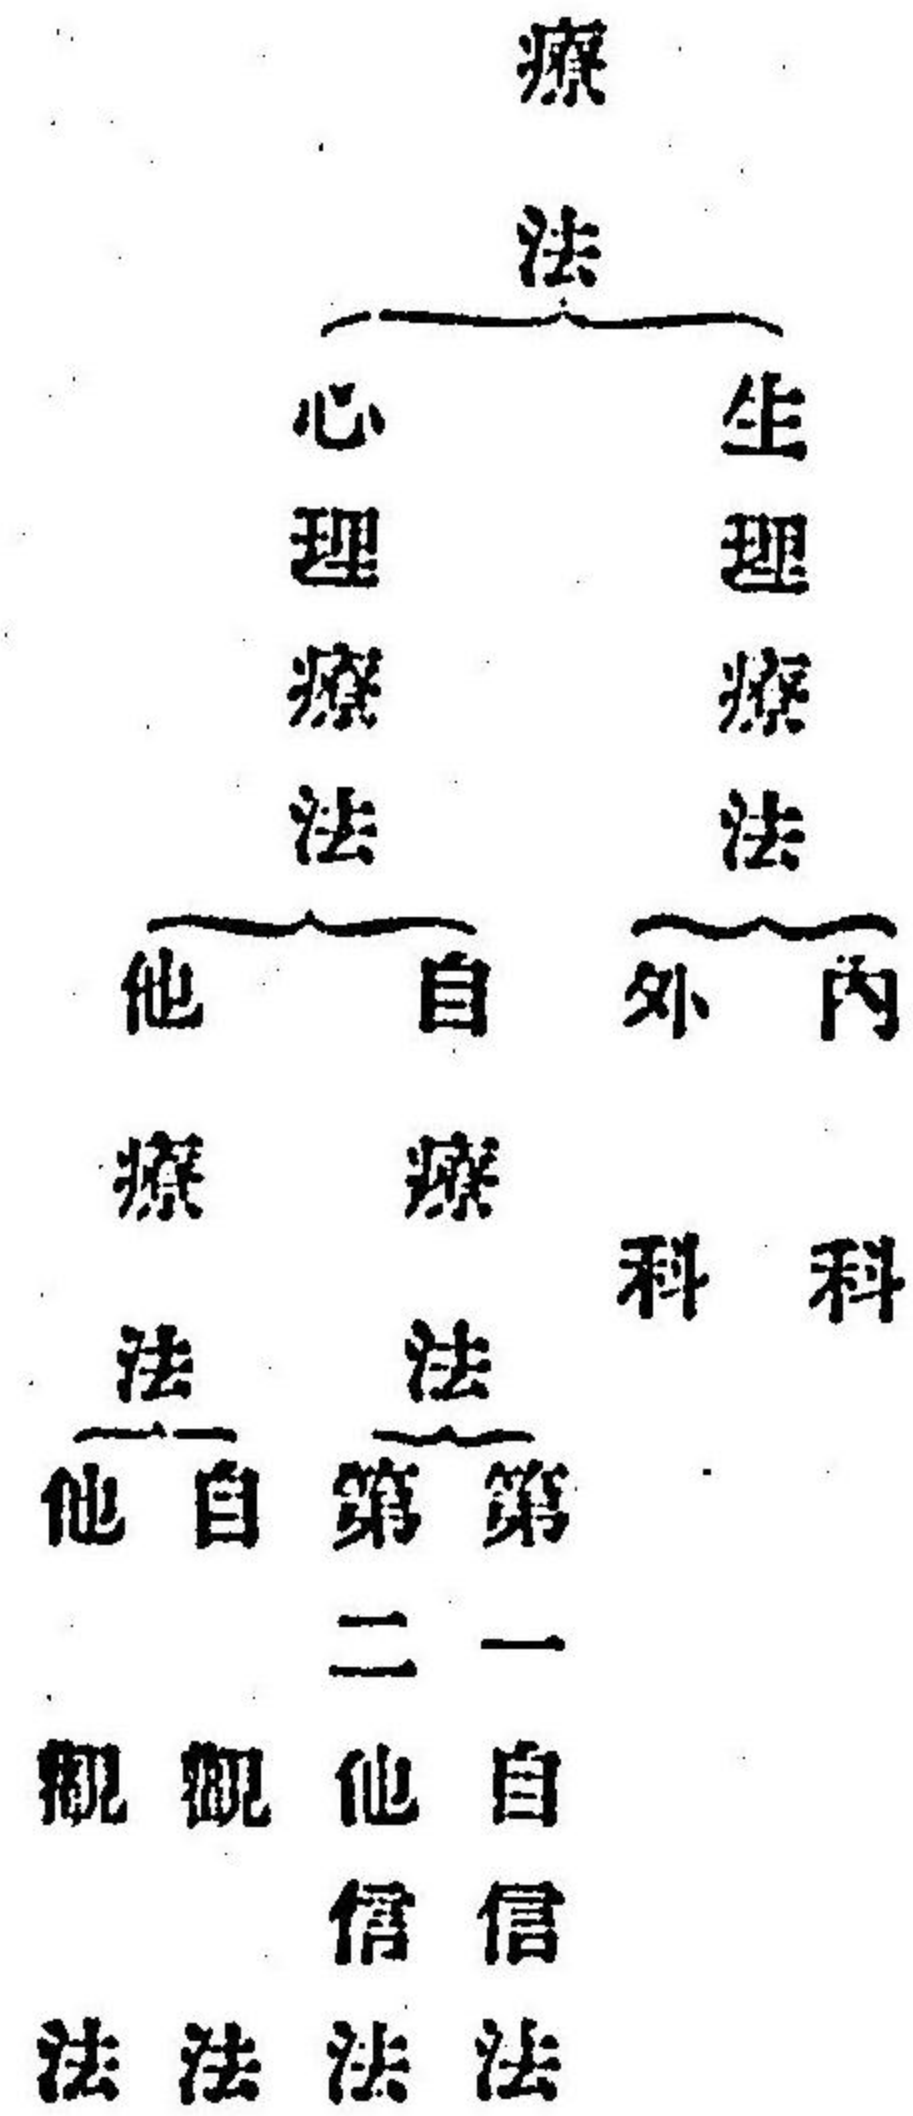 療法
生理療法
內科
外科
心理療法
自療法
第一自信法
第二他信法
他療法
自觀法
他觀法